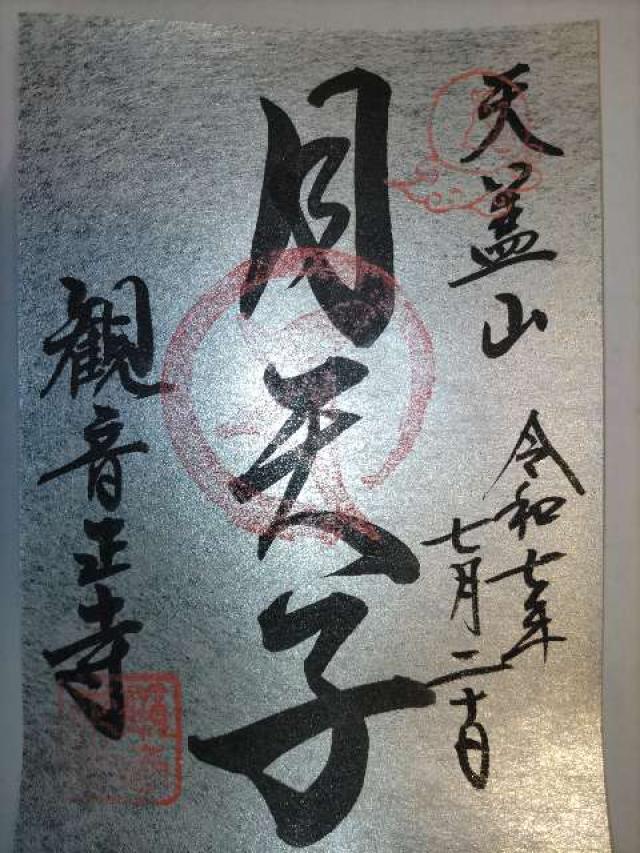 天蓋山
令和七年
七月二十日
月天子
観音正寺